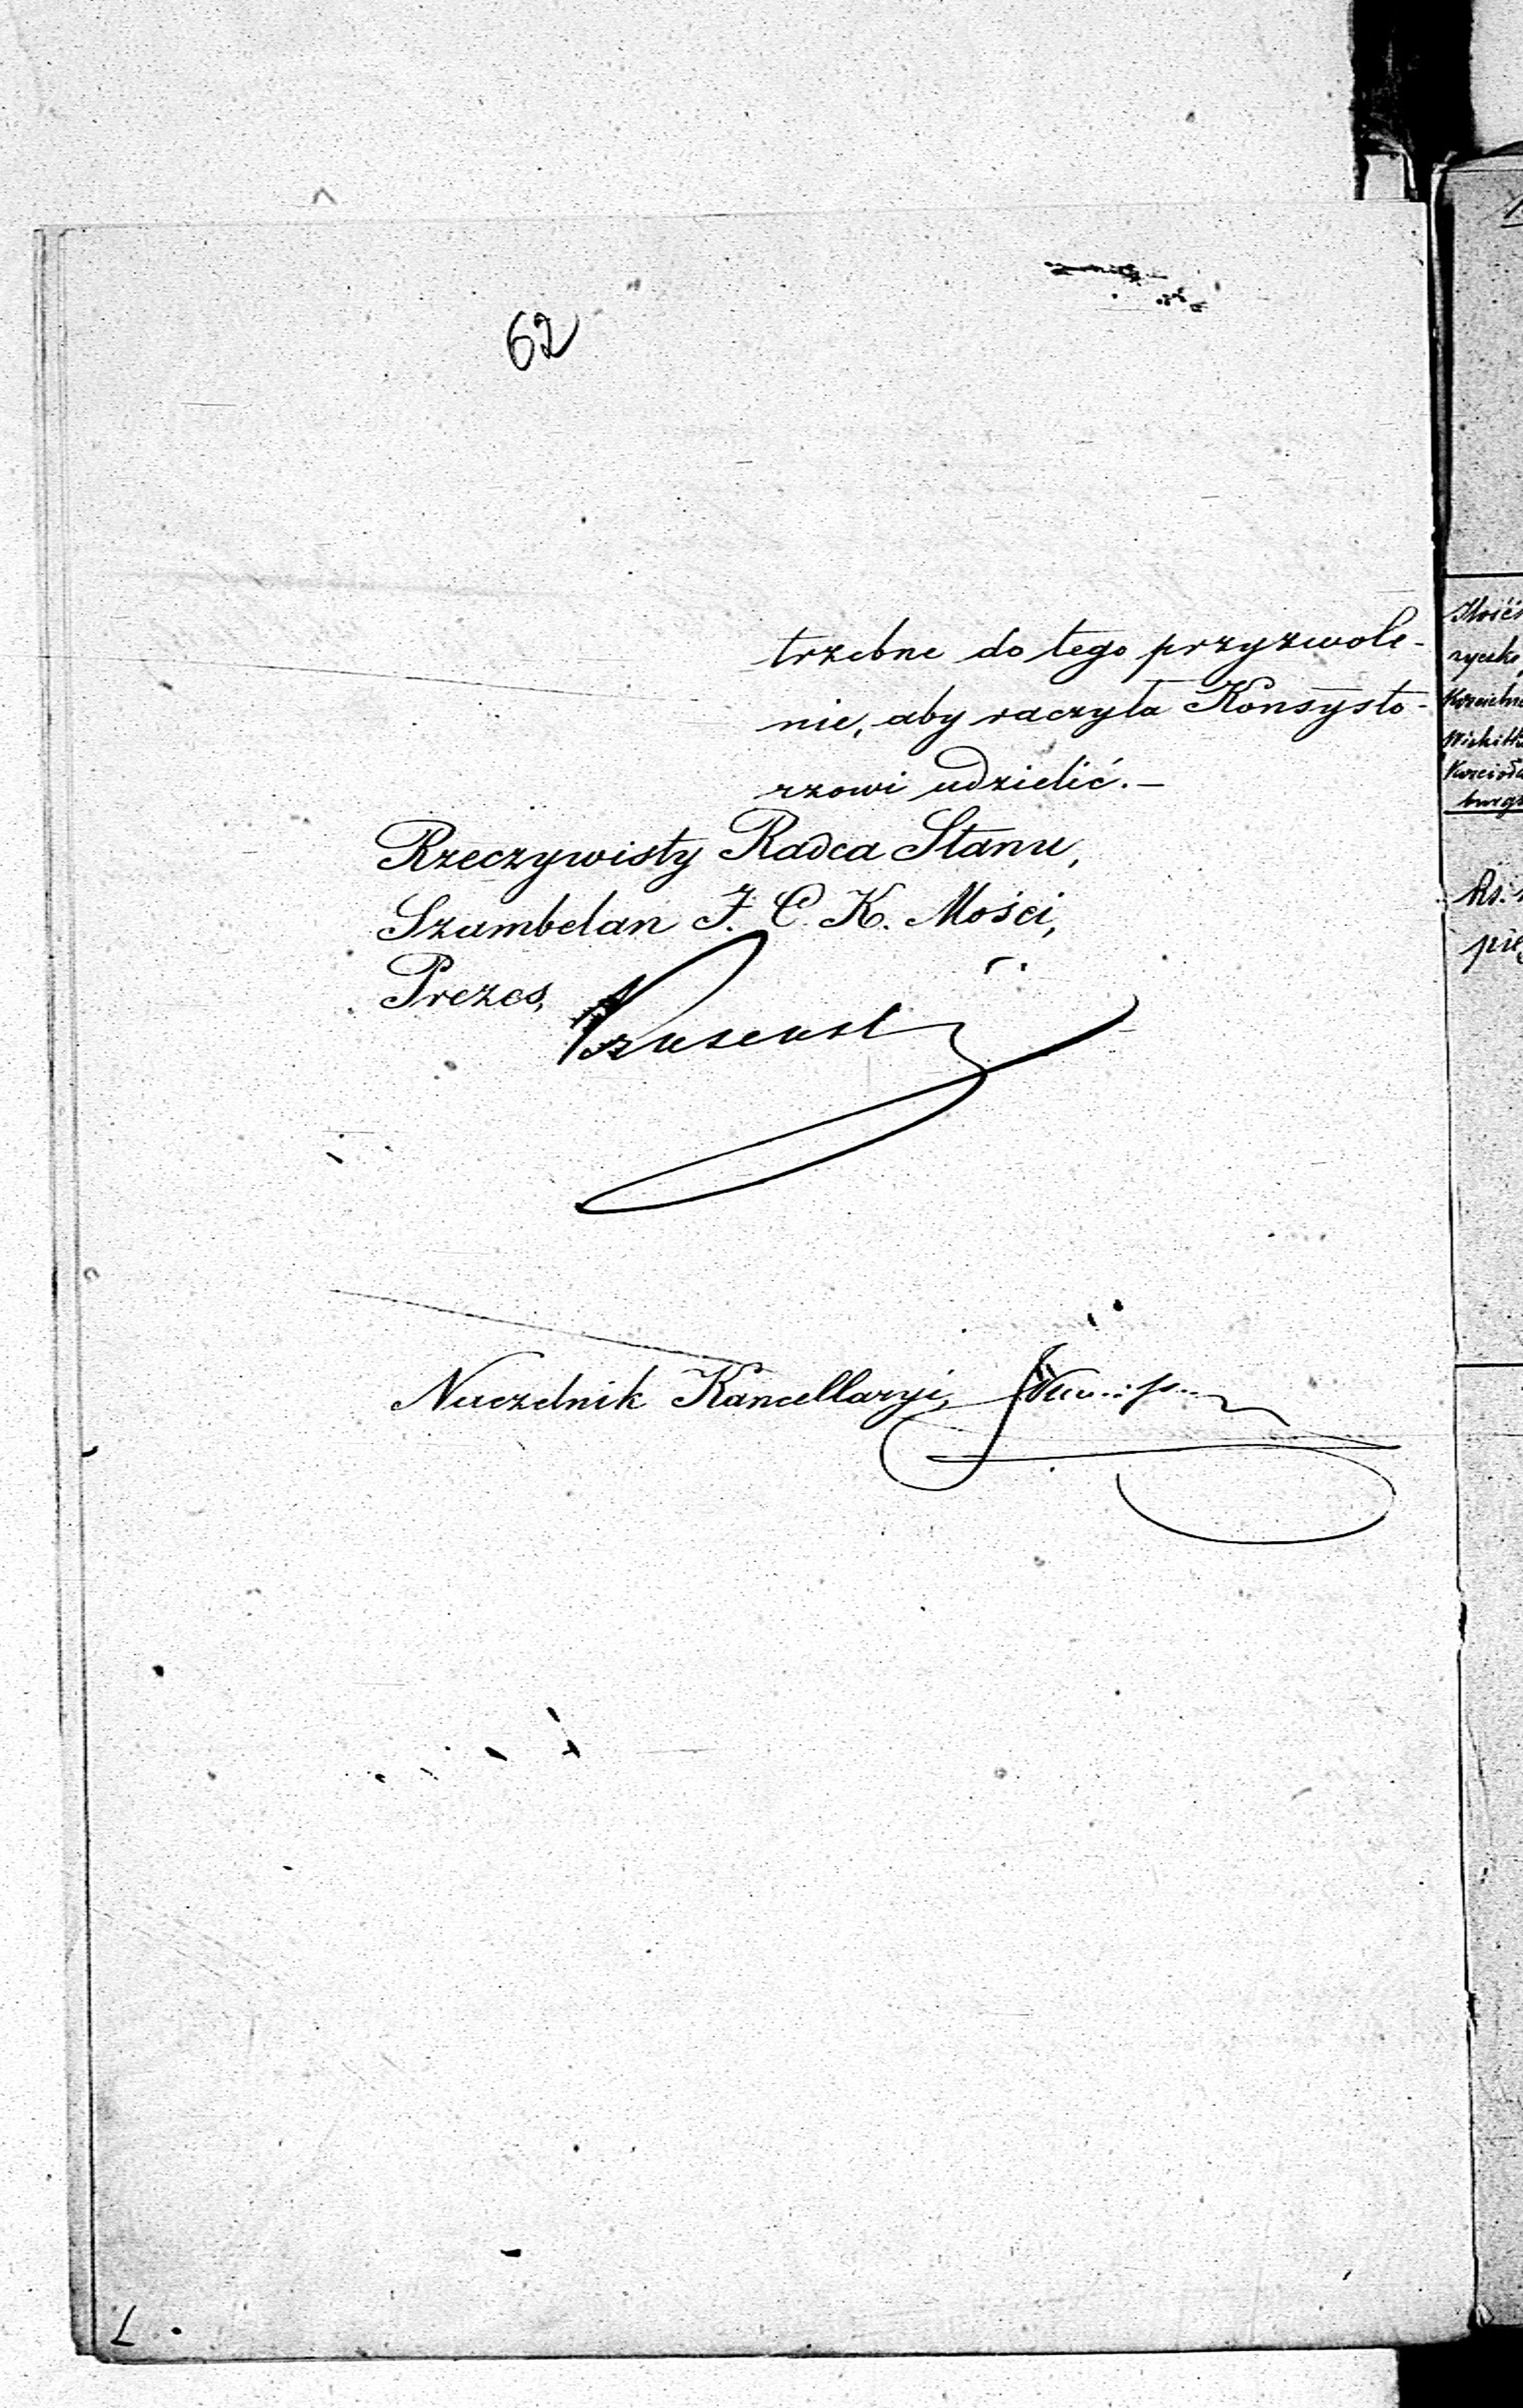 62
trzebne do tego przyzwole-
nie, aby raczyła Konsysto-
rzowi udzielić.—
Rzeczywisty Radca Stanu,
Szambelan J. C. K. Mości,
Prezes,
Naczelnik Kancellaryi,